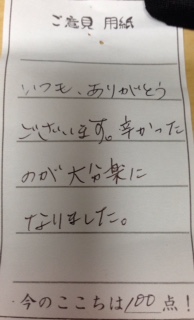 ご意見 用紙
いつも、ありがとう
ございます。辛かった
のが大分楽に
なりました。
今のここちは100点!